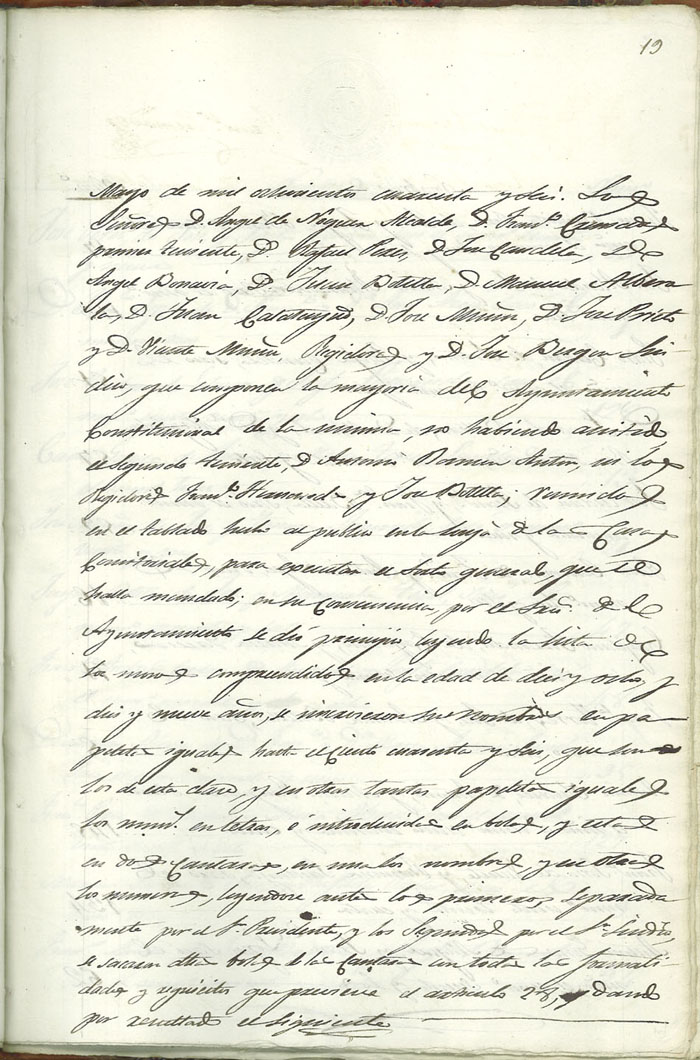 19
Mayo de mil ochocientos cuarenta y seis. Los
Señores D. Angel de Noguera Alcalde, D. Franco.
primer teniente, D. Rafael Perez, D. Jose Candela, D.
Angel Bonavia, D. Juan Botella, D. Manuel Albero
la, D. Juan Calatayud, D. Jose Muñoz, D. Jose Prieto
y D. Vicente Muñoz Regidores y D. Jose Sin
dico, que componen la mayoria del Ayuntamiento
Constitucional de la misma, no habiendo asistido
el Segundo teniente, D. Antonio Anton, ni los
Regidores Franco. y Jose Botella; reunidos
en el tablado hecho al publico en la lonja de las Casas
Consistoriales, para executar el sorteo general, que se
halla mandado; en su consecuencia, por el Srio. del
Ayuntamiento se dió principio, leyendo la lista de
los mozos comprendidos en la edad de diez y ocho, y
diez y nueve años, se inscrivieron sus nombres en pa
peletas iguales hasta el ciento cuarenta y seis, que son
los de esta clase, y en otras tantas papeletas iguales
los nums. en letras, é introducidas en bolas, y estas
en dos Cantaros, en uno los nombres, y en otro
los numeros, leyendose ante los primeros, separada
mente por el Sr. Presidente, y los Segundos por el Sr. Sindico,
se sacaron las bolas de los Cantaros con todas las formali
dades y requisitos que previene el articulo 28, y dando
por resultado el siguiente